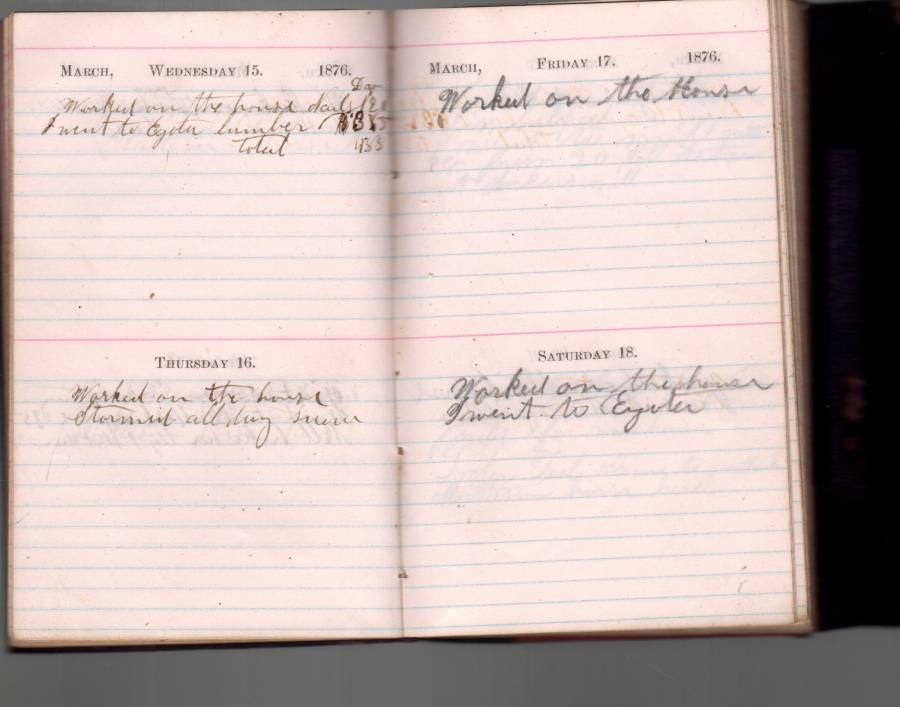 MARCH, WEDNESDAY 15. 1876.
Day
Worked on the house
I went to Eyota lumber
total
THURSDAY 16.
Worked on the house
Stormed all day snow
MARCH, FRIDAY 17. 1876.
Worked on the House
SATURDAY 18.
Worked on the house
I went to Eyota